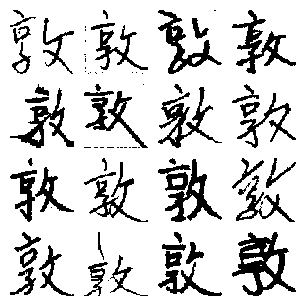 敦敦敦敦
敦敦敦敦
敦敦敦敦
敦敦敦敦